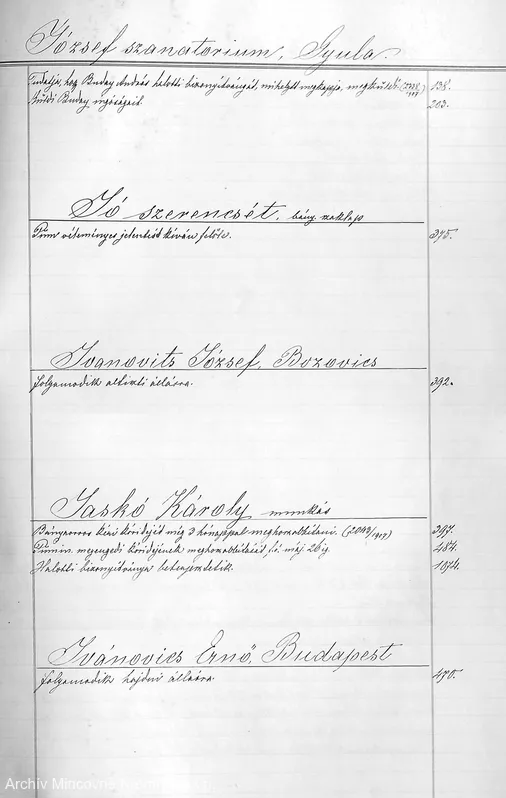 József szanatorium, Gyula.
Tudatja, hogy Buday András halotti bizonyítványát, mihelyt megkapja, megküldi. 138.
Buday 203.
Jó szerencsét, bány. szaklap
Püm véleményes jelentést kíván felőle. 375.
Ivanovits József, Bozovics
folyamodik altiszti állásra. 392.
Jaskó Károly munkás
Bányaorvos kéri kóridejét még 3 hónappal meghosszabbítani. 397.
Püm. megengedi kóridejének meghosszabbítását f. é. máj. 26 ig. 484.
Halotti bizonyítványa beterjesztetik. 1074.
Ivánovics Ernő, Budapest
folyamodik hajdui állásra. 470.
Archív Mincovne